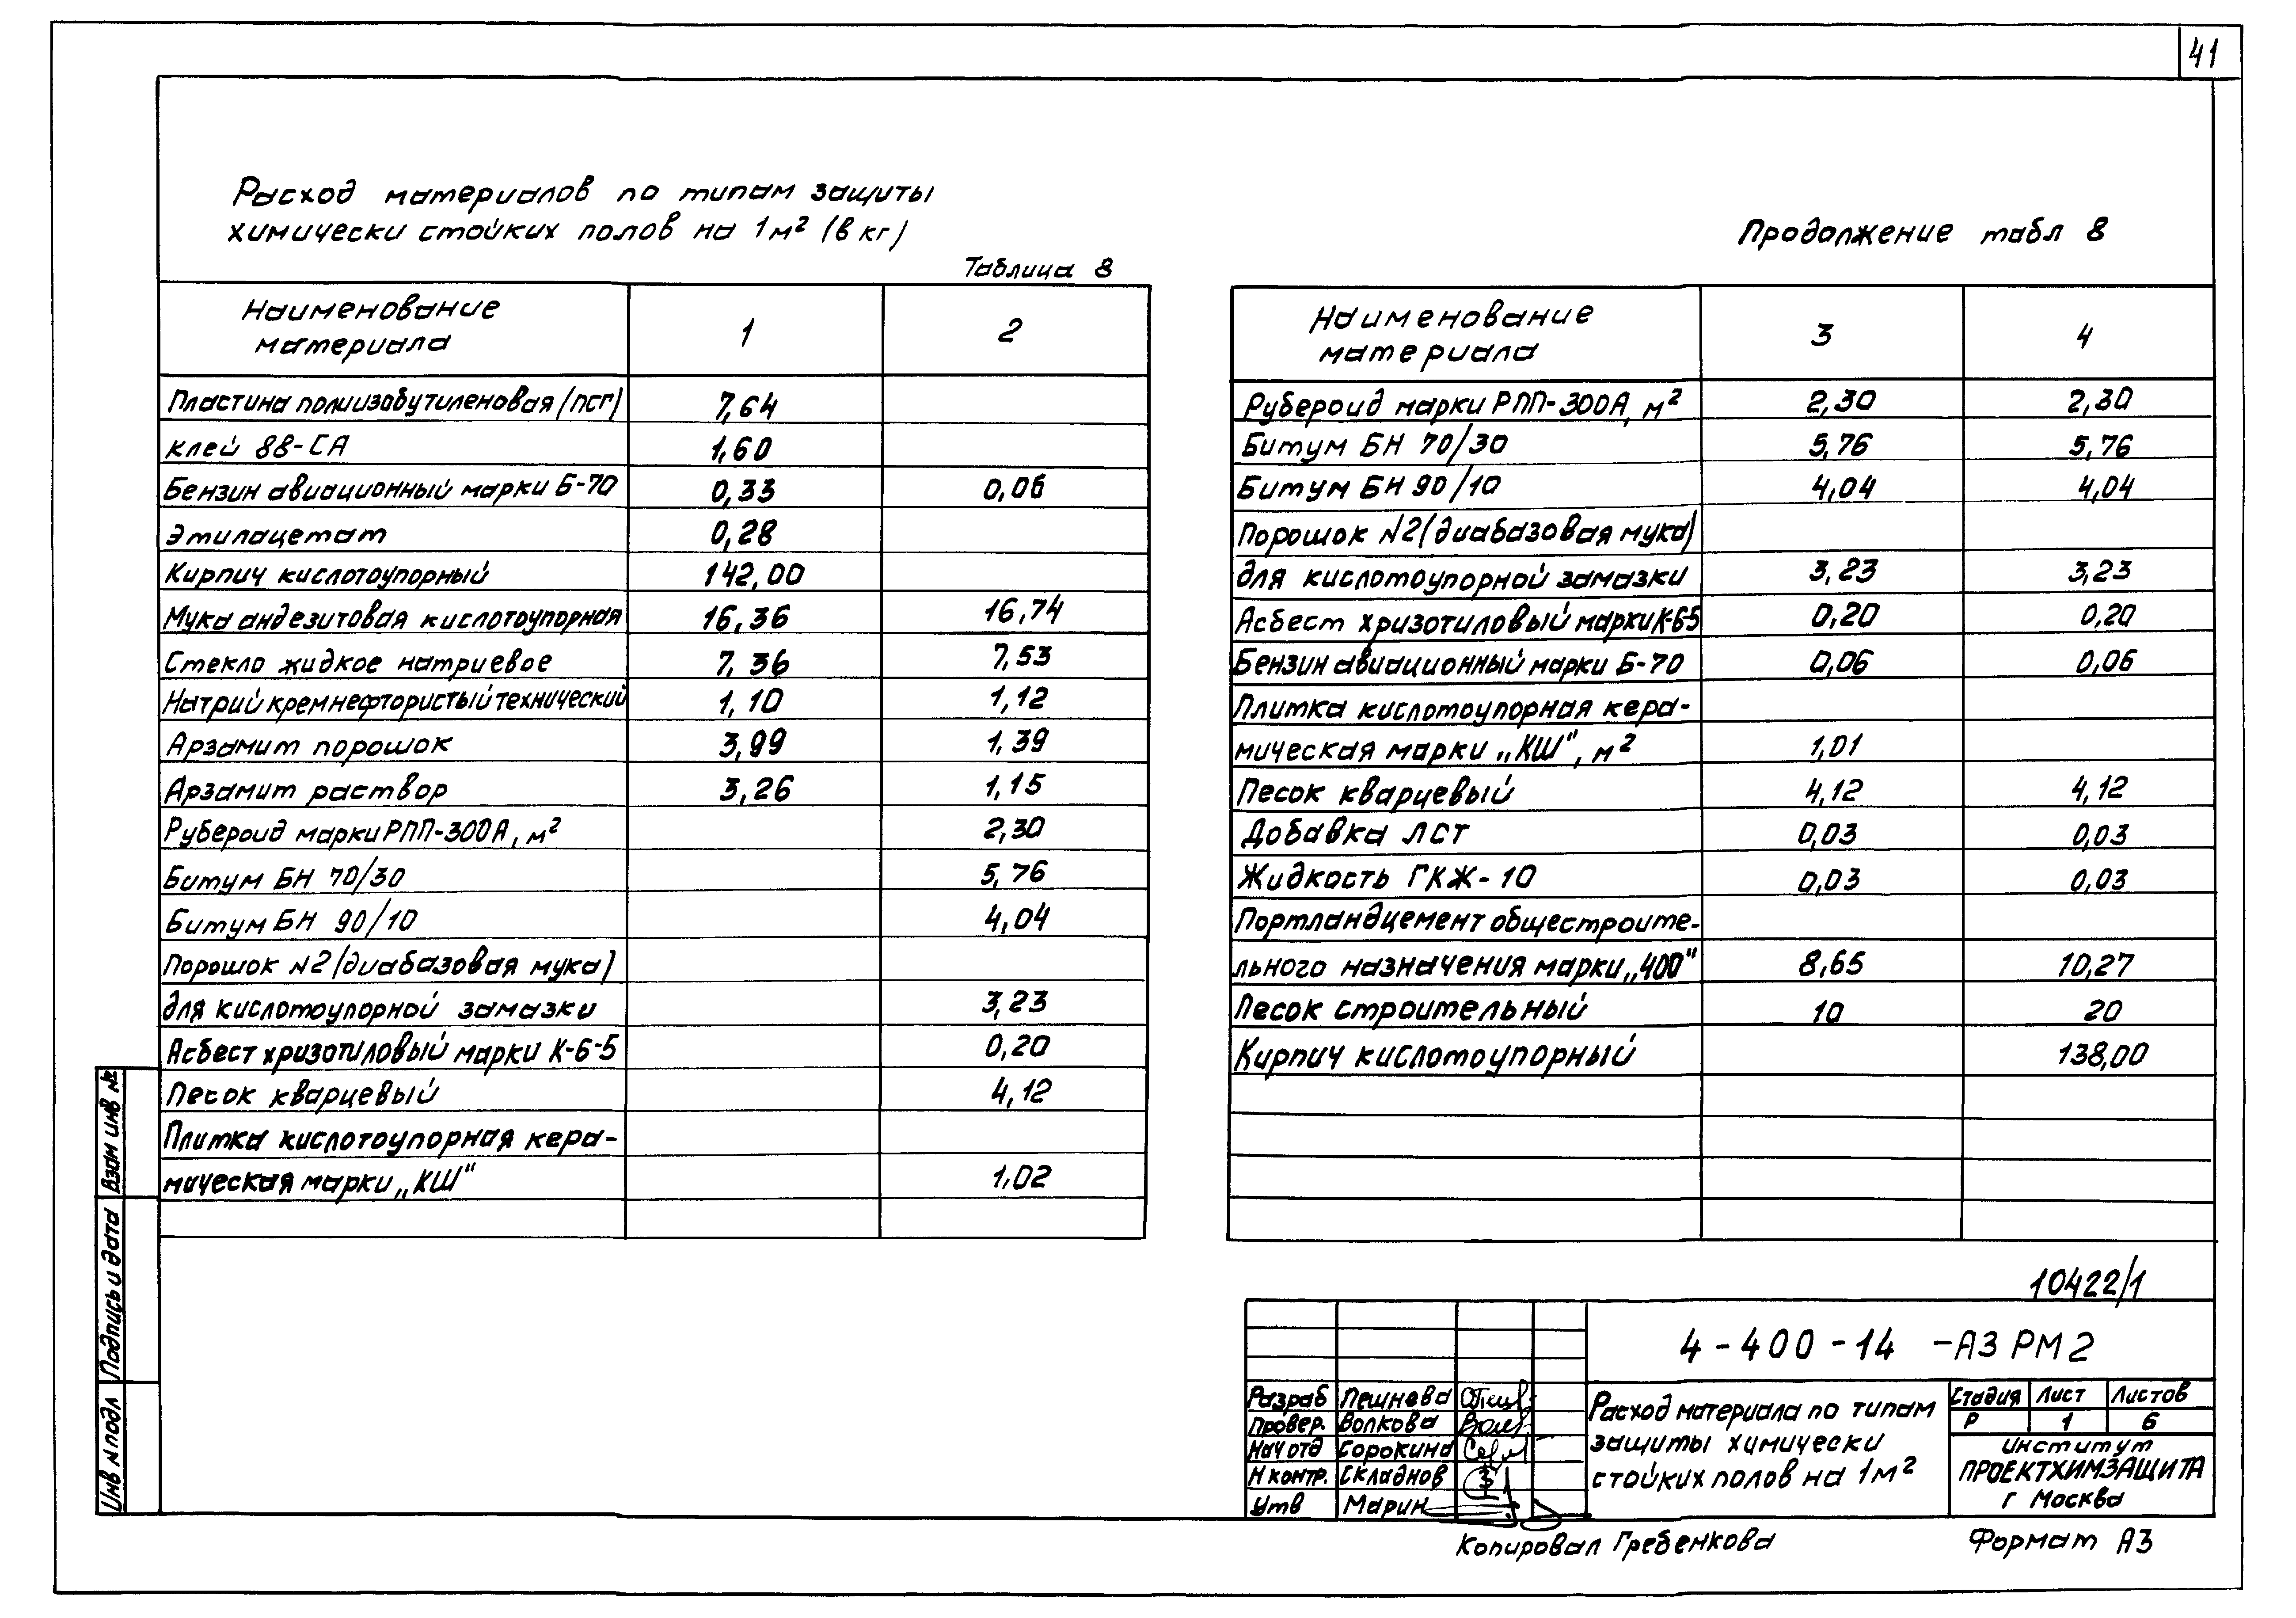 41
Расход материалов по типам защиты
химически стойких полов на 1м² (в кг)
Таблица 8
Наименование материала | 1 | 2
Пластина полиизобутиленовая (псг) | 7,64
клей 88-СА | 1,60
Бензин авиационный марки Б-70 | 0,33 | 0,06
Этилацетат | 0,28
Кирпич кислотоупорный | 142,00
Мука андезитовая кислотоупорная | 16,36 | 16,74
Стекло жидкое натриевое | 7,36 | 7,53
Натрий кремнефтористый технический | 1,10 | 1,12
Арзамит порошок | 3,99 | 1,39
Арзамит раствор | 3,26 | 1,15
Рубероид марки РПП-300А, м² | 2,30
Битум БН 70/30 | 5,76
Битум БН 90/10 | 4,04
Порошок N2 (диабазовая мука)
для кислотоупорной замазки | 3,23
Асбест хризотиловый марки К-6-5 | 0,20
Песок кварцевый | 4,12
Плитка кислотоупорная кера-
мическая марки „КШ" | 1,02
Продолжение табл 8
Наименование материала | 3 | 4
Рубероид марки РПП-300А, м² | 2,30 | 2,30
Битум БН 70/30 | 5,76 | 5,76
Битум БН 90/10 | 4,04 | 4,04
Порошок N2 (диабазовая мука)
для кислотоупорной замазки | 3,23 | 3,23
Асбест хризотиловый марки К-6-5 | 0,20 | 0,20
Бензин авиационный марки Б-70 | 0,06 | 0,06
Плитка кислотоупорная кера-
мическая марки „КШ", м² | 1,01
Песок кварцевый | 4,12 | 4,12
Добавка ЛСТ | 0,03 | 0,03
Жидкость ГКЖ-10 | 0,03 | 0,03
Портландцемент общестроите-
льного назначения марки „400" | 8,65 | 10,27
Песок строительный | 10 | 20
Кирпич кислотоупорный | 138,00
10422/1
4-400-14 -АЗ РМ2
Разраб Пешнева
Провер. Волкова
Нач отд Сорокина
Н контр. Складнов
Утв Марин
Расход материала по типам
защиты химически
стойких полов на 1м²
Стадия Лист Листов
Р 1 6
Институт
ПРОЕКТХИМЗАЩИТА
г Москва
Копировал Гребенкова
Формат А3
Взам инв №
Подпись и дата
Инв N подл